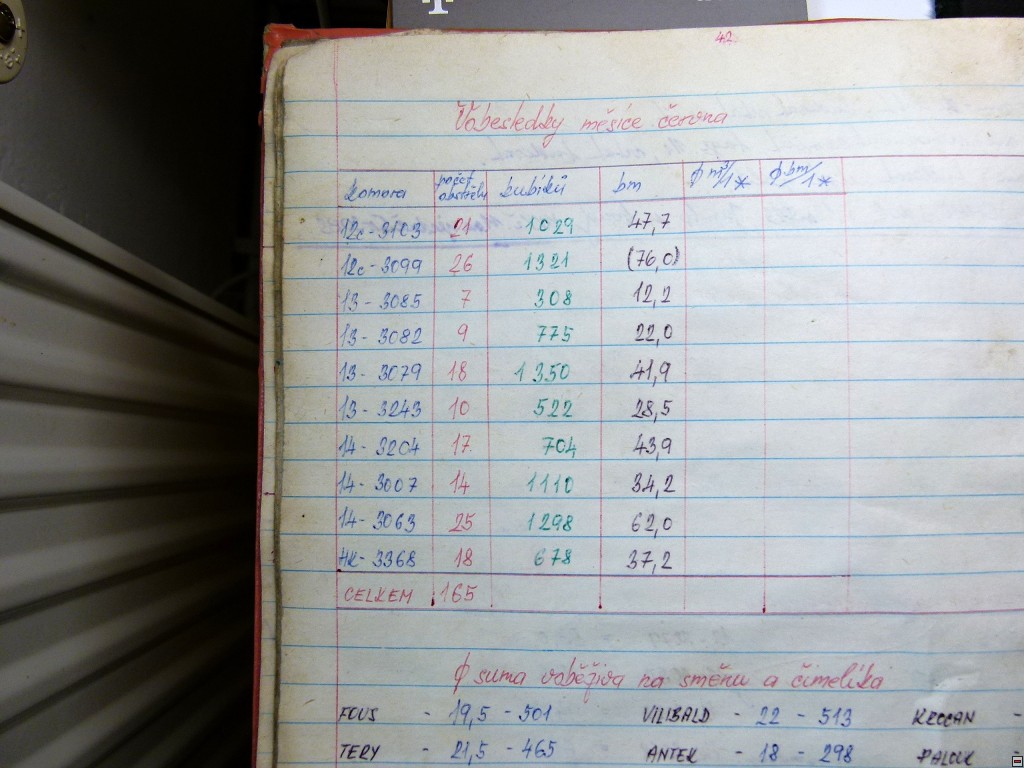 42.
Vobesledky měsíce června
komora počet obstřelů kubíků bm ϕ m³/1* ϕ bm/1*
12c-3103 21 1029 47,7
12c-3099 26 1321 (76,0)
13-3085 7 308 12,2
13-3082 9 775 22,0
13-3079 18 1350 41,9
13-3243 10 522 28,5
14-3204 17 704 43,9
14-3007 14 1110 34,2
14-3063 25 1298 62,0
HK-3368 18 678 37,2
CELKEM 165
ϕ suma voběživa na směnu a čimelíka
FOUS - 19,5 - 501 VILIBALD - 22 - 513 KROCAN -
TERY - 21,5 - 465 ANTEK - 18 - 298